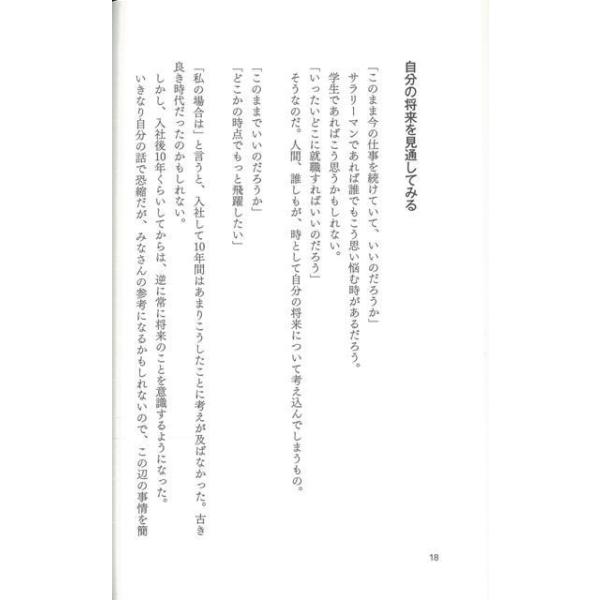 自分の将来を見通してみる
「このまま今の仕事を続けていて、いいのだろうか」
サラリーマンであれば誰でもこう思い悩む時があるだろう。
学生であればこう思うかもしれない。
「いったいどこに就職すればいいのだろう」
そうなのだ。人間、誰しもが、時として自分の将来について考え込んでしまうもの。
「このままでいいのだろうか」
「どこかの時点でもっと飛躍したい」
「私の場合は」と言うと、入社して10年間はあまりこうしたことに考えが及ばなかった。古き
良き時代だったのかもしれない。
しかし、入社後10年くらいしてからは、逆に常に将来のことを意識するようになった。
いきなり自分の話で恐縮だが、みなさんの参考になるかもしれないので、この辺の事情を簡
18